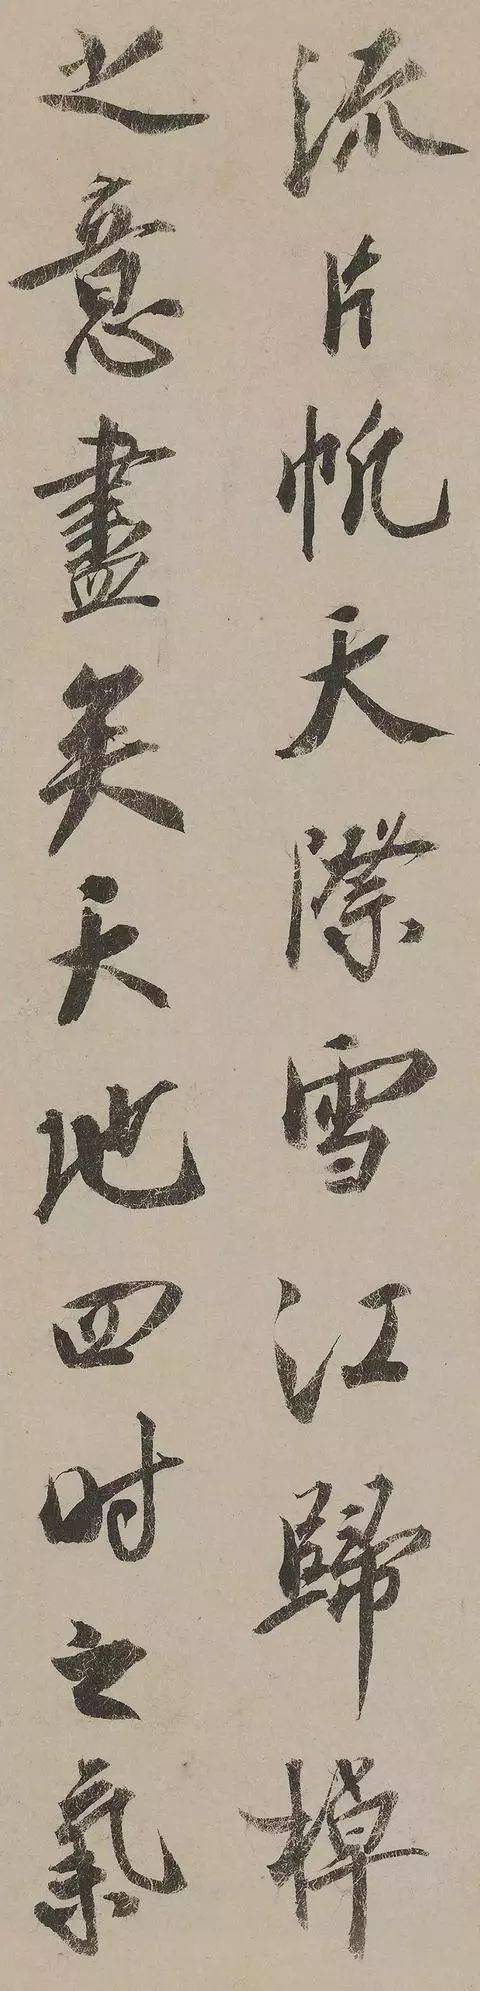 流片帆天際雪江歸棹
之意盡矣天地四時之氣